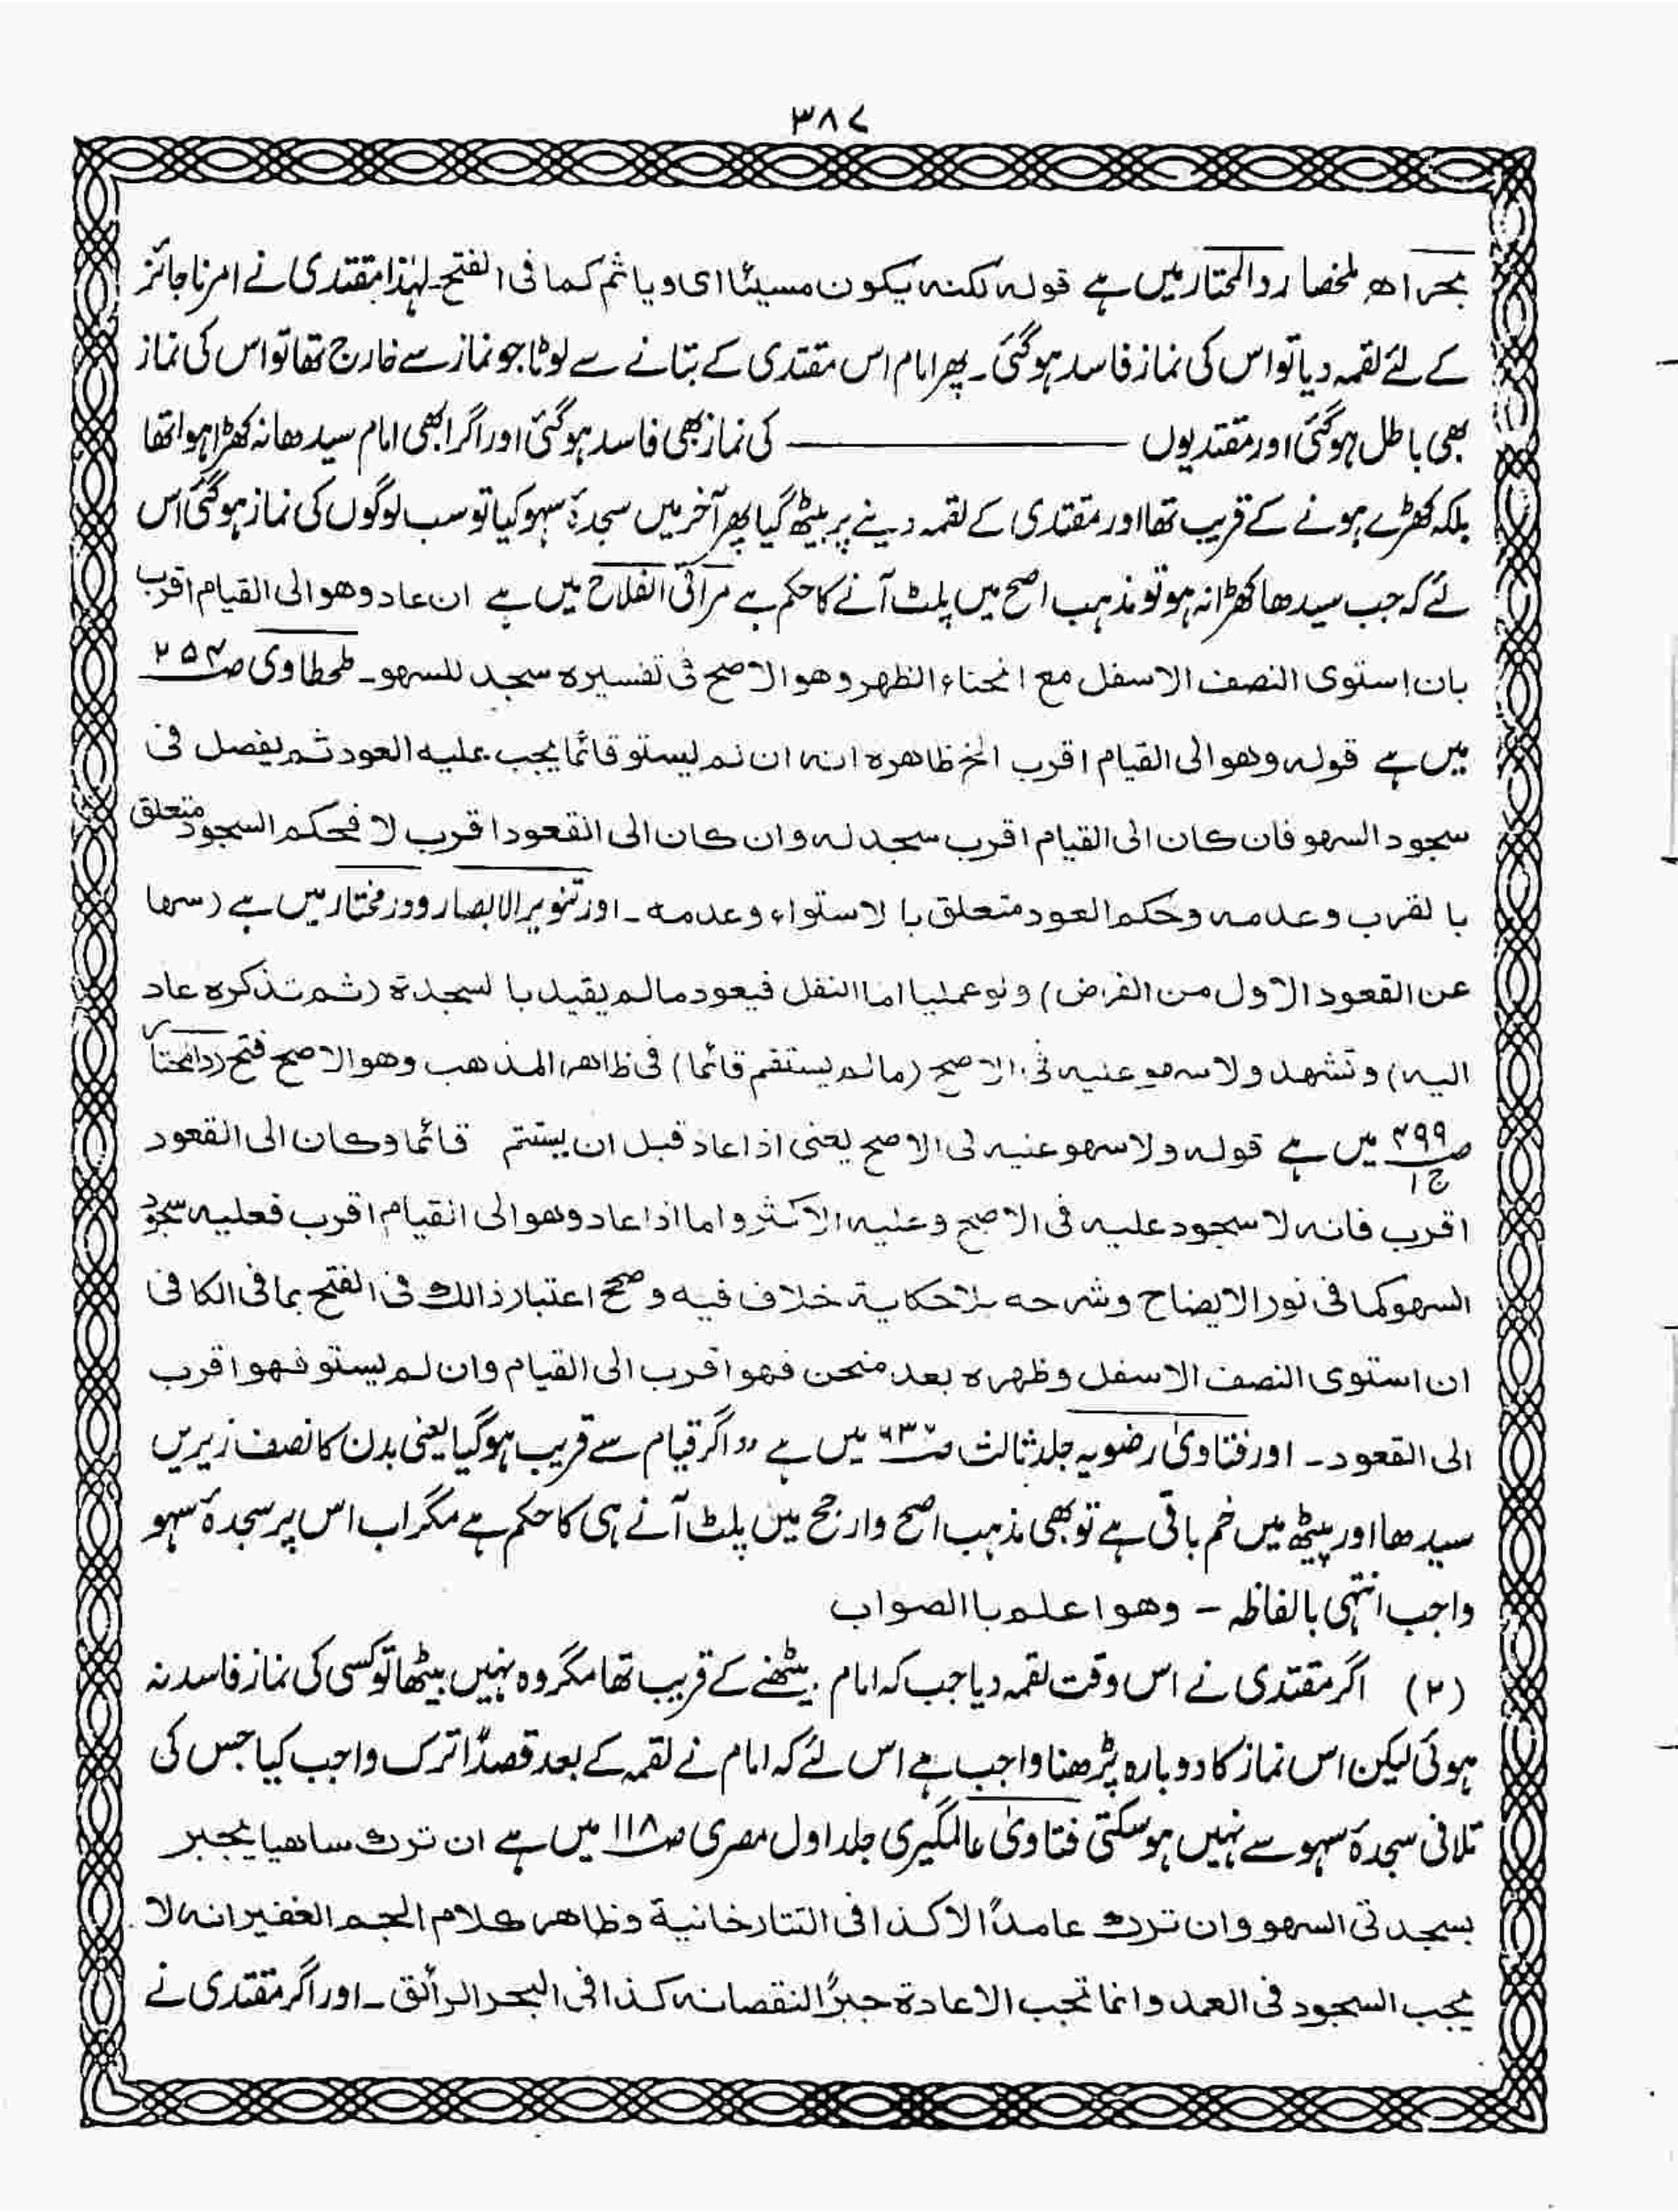 ۳۸۷
بحر اھ ملخصا ردالمحتار میں ہے قولہ لکنہ یکون مسیئا ای ویاثم کما فی الفتح۔ لہٰذا مقتدی نے امر ناجائز
کے لئے لقمہ دیا تو اس کی نماز فاسد ہوگئی۔ پھر امام اس مقتدی کے بتانے سے لوٹا جو نماز سے خارج تھا تو اس کی نماز
بھی باطل ہوگئی اور مقتدیوں ——— کی نماز بھی فاسد ہوگئی اور اگر ابھی امام سیدھا نہ کھڑا ہوا تھا
بلکہ کھڑے ہونے کے قریب تھا اور مقتدی کے لقمہ دینے پر بیٹھ گیا پھر آخر میں سجدۂ سہو کیا تو سب لوگوں کی نماز ہوگئی اس
لئے کہ جب سیدھا کھڑا نہ ہو تو مذہب اصح میں پلٹ آنے کا حکم ہے مراقی الفلاح میں ہے ان عاد وھو الی القیام اقرب
بان استوی النصف الاسفل مع انحناء الظھر وھو الاصح فی تفسیرہ سجد للسھو۔ طحطاوی صـ ۲۵۴
میں ہے قولہ وھو الی القیام اقرب الخ ظاھرہ انہ ان لم یستو قائما یجب علیہ العود ثم یفصل فی
سجود السھو فان کان الی القیام اقرب سجد لہ وان کان الی القعود اقرب لا فحکم السجود متعلق
بالقرب وعدمہ وحکم العود متعلق بالاستواء وعدمہ۔ اور تنویر الابصار ودر مختار میں ہے (سھا
عن القعود الاول من الفرض) ولو عملیا اما النفل فیعود مالم یقید بالسجدۃ (ثم تذکرہ عاد
الیہ) وتشھد ولا سھو علیہ فی الاصح (مالم یستقم قائما) فی ظاھر المذھب وھو الاصح فتح ردالمحتار
صـ ۴۹۹ ج ۱ میں ہے قولہ ولا سھو علیہ فی الاصح یعنی اذا عاد قبل ان یستتم قائما وکان الی القعود
اقرب فانہ لا سجود علیہ فی الاصح وعلیہ الاکثر واما اذا عاد وھو الی القیام اقرب فعلیہ سجود
السھو کما فی نور الایضاح وشرحہ بلا حکایۃ خلاف فیہ وصحح اعتبار ذالک فی الفتح بما فی الکافی
ان استوی النصف الاسفل وظھرہ بعد منحن فھو اقرب الی القیام وان لم یستو فھو اقرب
الی القعود۔ اور فتاویٰ رضویہ جلد ثالث میں ہے "اگر قیام سے قریب ہوگیا یعنی بدن کا نصف زیریں
سیدھا اور پیٹھ میں خم باقی ہے تو بھی مذہب اصح وارجح میں پلٹ آنے ہی کا حکم ہے مگر اب اس پر سجدۂ سہو
واجب انتہی بالفاظہ – وھو اعلم باالصواب
(۲) اگر مقتدی نے اس وقت لقمہ دیا جب کہ امام بیٹھنے کے قریب تھا مگر وہ نہیں بیٹھا تو کسی کی نماز فاسد نہ
ہوئی لیکن اس نماز کا دوبارہ پڑھنا واجب ہے اس لئے کہ امام نے لقمہ کے بعد قصداً ترک واجب کیا جس کی
تلافی سجدۂ سہو سے نہیں ہوسکتی فتاویٰ عالمگیری جلد اول مصری صـ ۱۱۸ میں ہے ان ترک ساھیا یجبر
بسجدتی السھو وان ترک عامداً لا کذا فی التتارخانیۃ وظاھر کلام الجم الغفیر انہ لا
یجب السجود فی العمد وانما تجب الاعادۃ جبراً لنقصانہ کذا فی البحر الرائق۔ اور اگر مقتدی نے